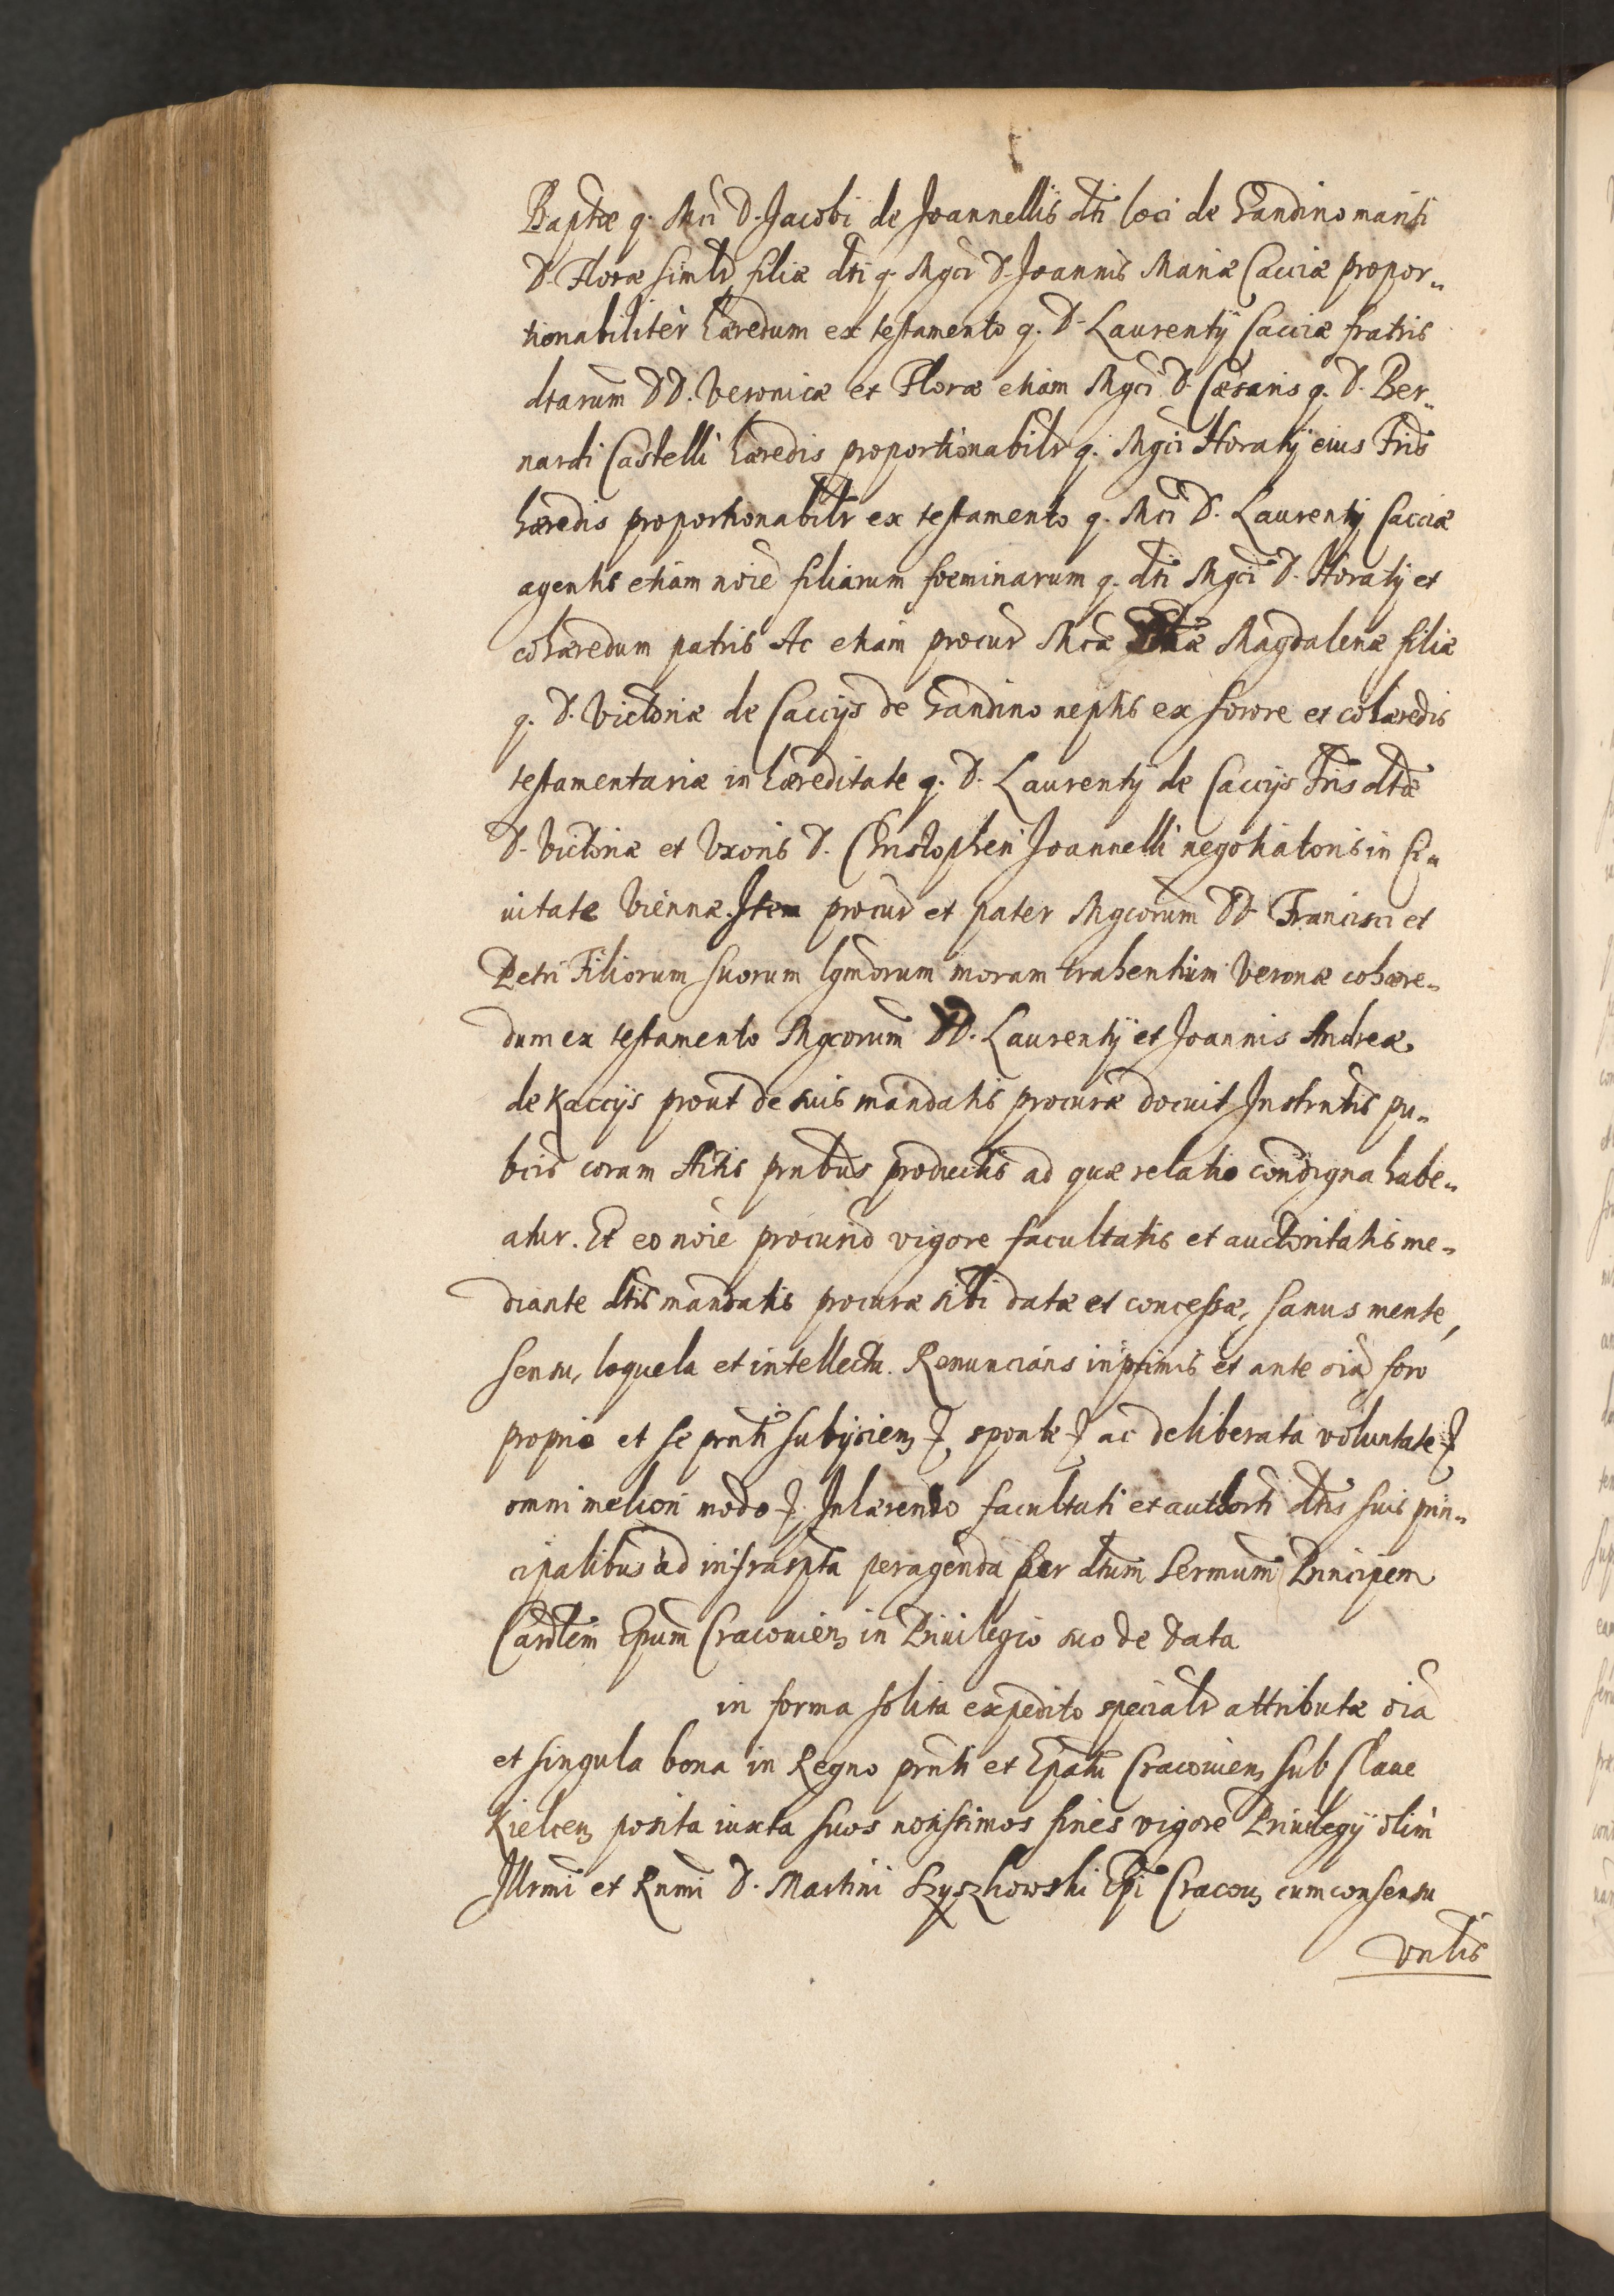 Baptæ q. Mci D. Jacobi de Joannellis dti loci de Gandino mariti
D. Floræ simlr filiæ dti q. Mgci D. Joannis Mariæ Cacciæ propor„
tionabiliter hæredum ex testamento q. D. Laurentÿ Cacciæ fratris
dtarum DD. Veronicæ et Floræ etiam Mgci D. Cæsaris q. D. Ber„
nardi Castelli hæredis proportionabilr q. Mgci Horatÿ eius Fris
hæredis proportionabilr ex testamento q. Mci D. Laurentÿ Cacciæ
agentis etiam noie filiarum foeminarum q. dti Mgci D. Horatÿ et
cohæredum patris Ac etiam procur Mcæ Magdalenæ filiæ
q. D. Victoriæ de Caccÿs de Gandino neptis ex sorore et cohæredis
testamentariæ in hæreditate q. D. Laurentÿ de Caccÿs Fris dtæ
D. Victoriæ et Uxoris D. Christopheri Joannelli negotiatoris in Ci„
vitate Viennæ. Item procur et pater Mgcorum DD. Francisci et
Petri Filiorum suorum lgmorum moram trahentium Veronæ cohære„
dum ex testamento Mgcorum DD. Laurentÿ et Joannis Andreæ
de Kaccÿs prout de suis mandatis procuræ docuit Instrntis pu„
bcis coram Actis pntbus productis ad quæ relatio condigna habe„
atur. Et eo noie procurio vigore facultatis et auctoritatis me„
diante dtis mandatis procuræ sibi datæ et concessæ, sanus mente,
sensu, loquela et intellectu. Renuncians inprimis et ante oia foro
proprio et se prnti subÿciens &, sponte & ac deliberata voluntate &
omni meliori modo &. Inhærendo facultati et authorti dtis suis prin„
cipalibus ad infrasrpta peragenda per dtum Sermum Principem
Cardlem Epum Cracovien in Privilegio suo de data
in forma solita expedito specialr attributæ oia
et singula bona in Regno prnti et Epatu Cracovien sub Clave
Kielcen posita iuxta suos notissimos fines vigore Privilegÿ olim
Illrmi et Rnmi D. Martini Szyszkowski Epi Cracov cum consensu
vnlis